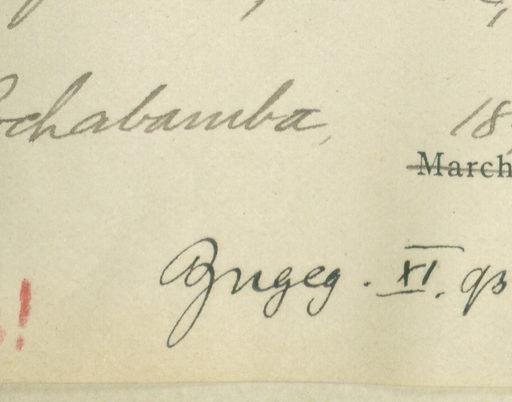 Cochabamba, 18
March
Zugeg. XI. 93
!